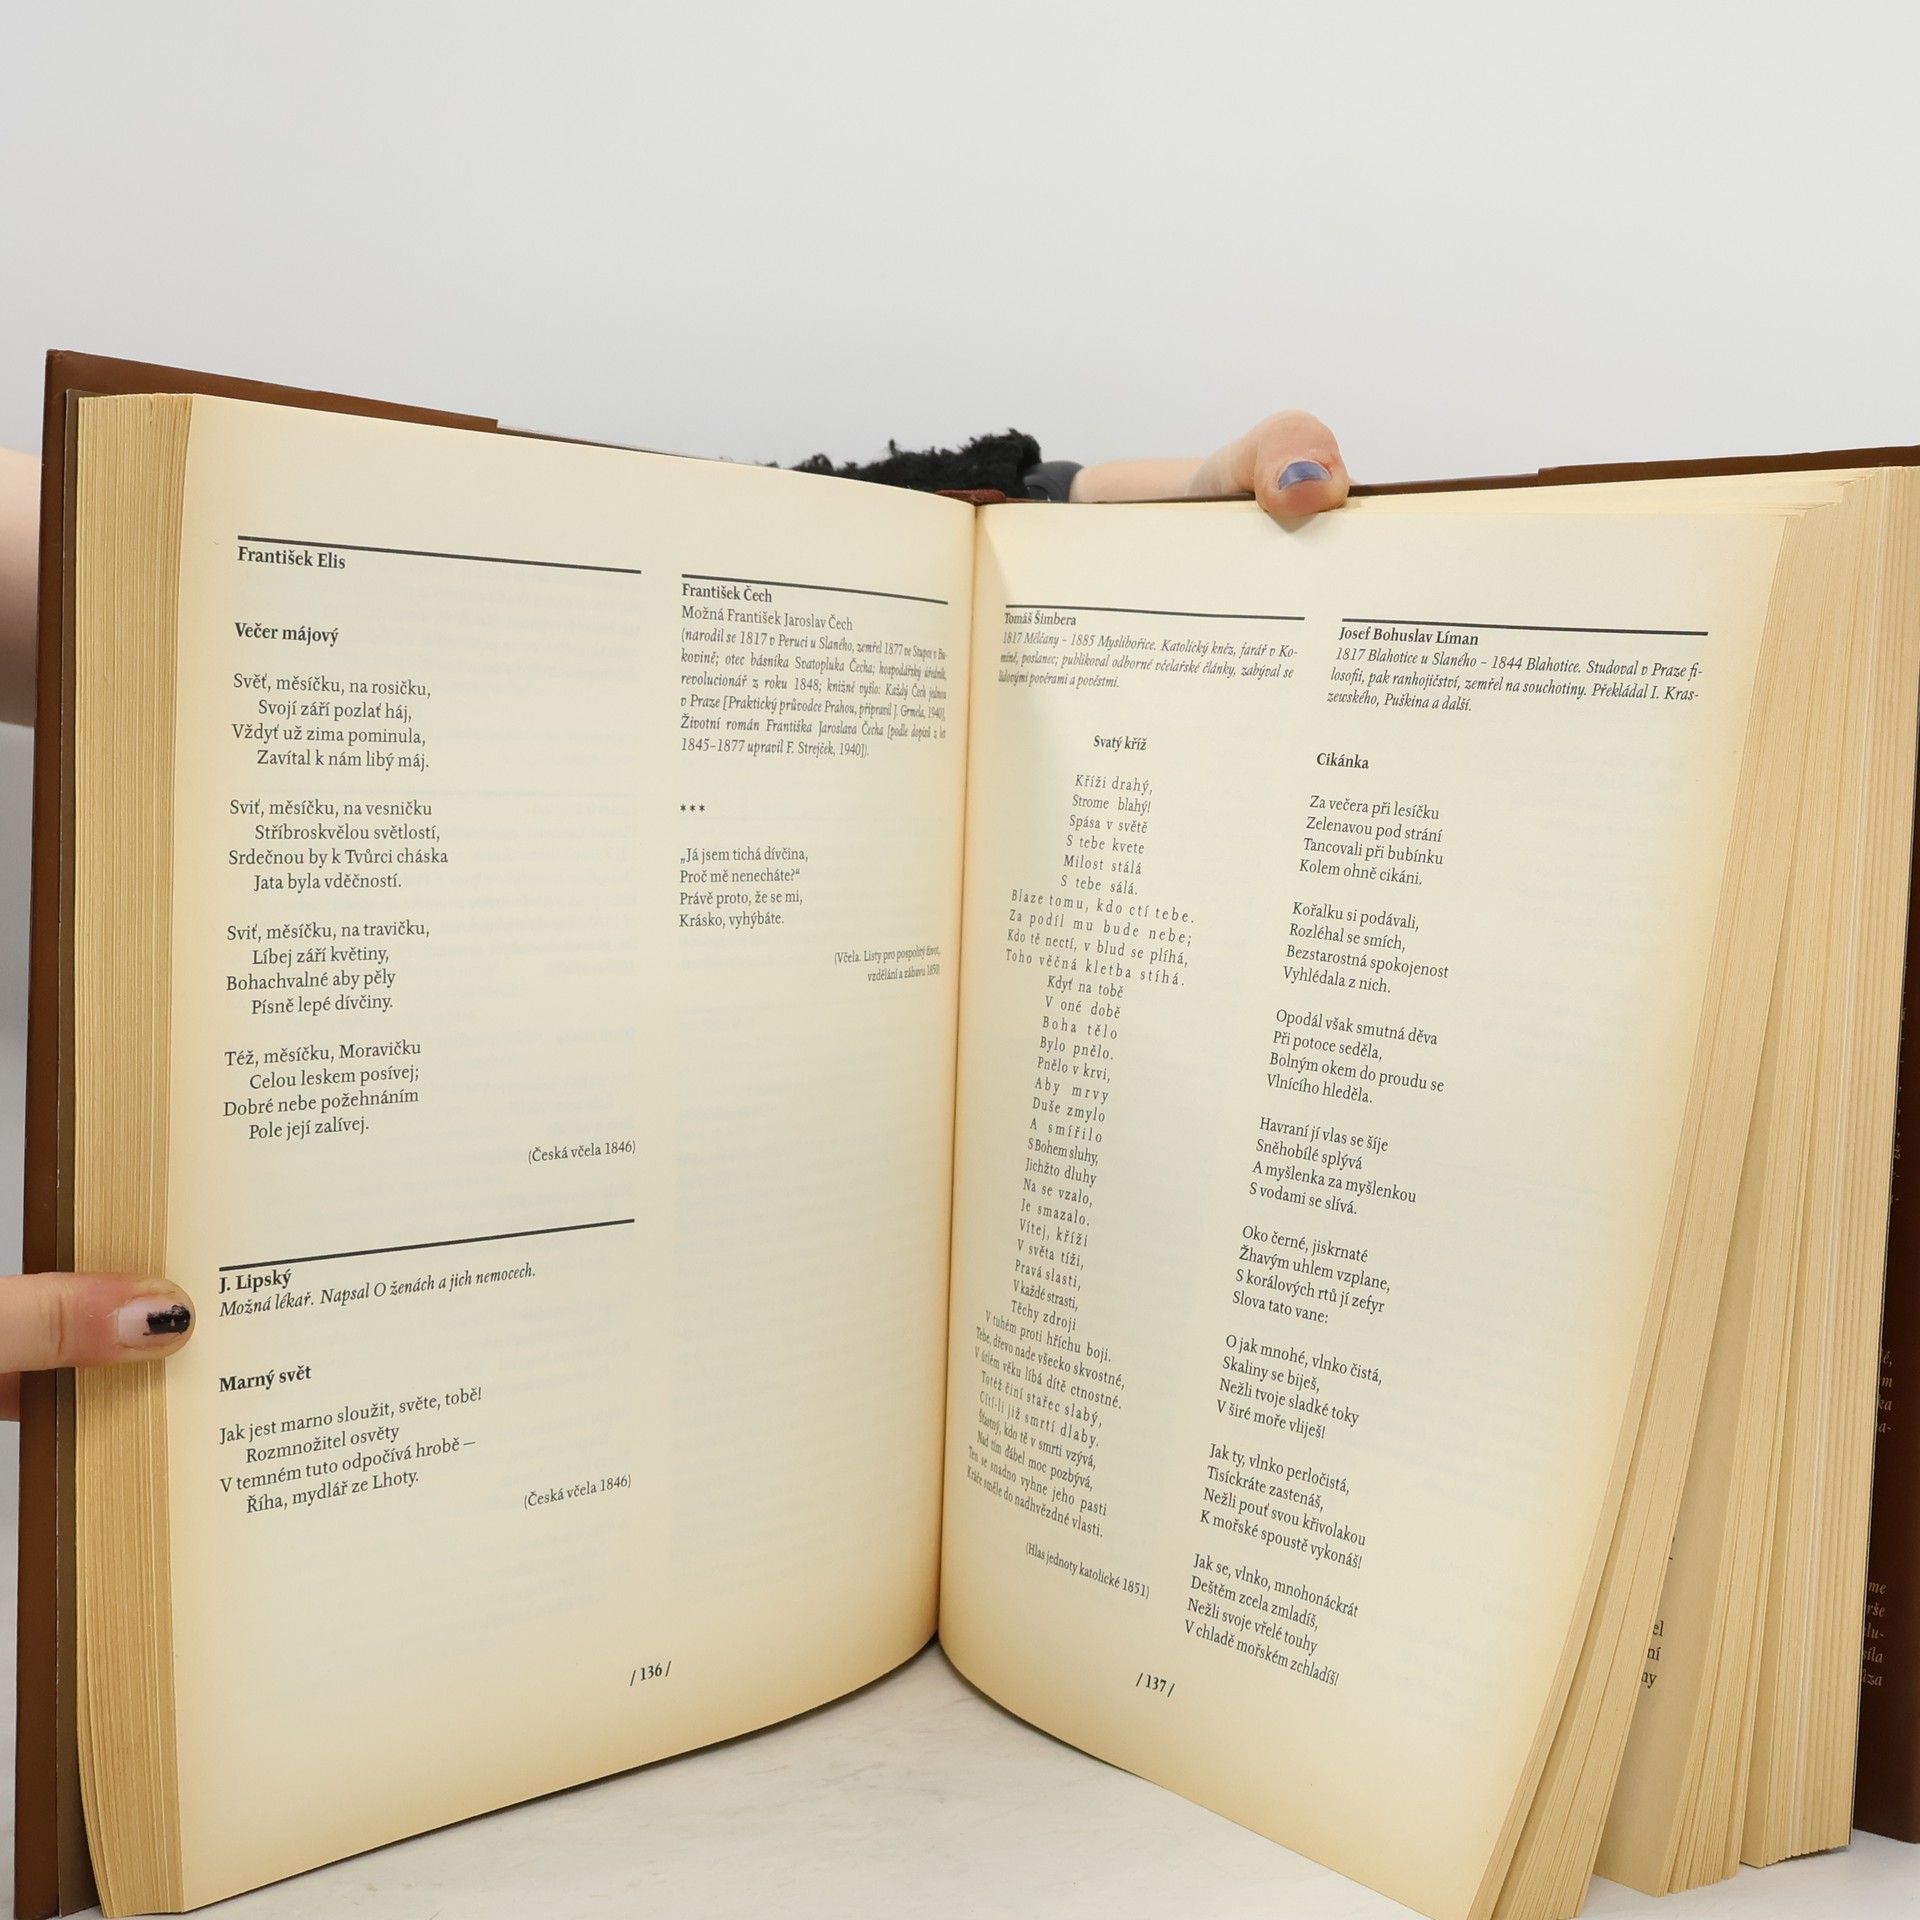 František Elis
Večer májový
Svěť, měsíčku, na rosičku,
Svojí září pozlať háj,
Vždyť už zima pominula,
Zavítal k nám libý máj.
Sviť, měsíčku, na vesničku
Stříbroskvělou světlostí,
Srdečnou by k Tvůrci cháska
Jata byla vděčností.
Sviť, měsíčku, na travičku,
Líbej září květiny,
Bohachvalné aby pěly
Písně lepé dívčiny.
Též, měsíčku, Moravičku
Celou leskem posívej;
Dobré nebe požehnáním
Pole její zalívej.
(Česká včela 1846)
J. Lipský
Možná lékař. Napsal O ženách a jich nemocech.
Marný svět
Jak jest marno sloužit, světe, tobě!
Rozmnožitel osvěty
V temném tuto odpočívá hrobě —
Říha, mydlář ze Lhoty.
(Česká včela 1846)
František Čech
Možná František Jaroslav Čech
(narodil se 1817 v Peruci u Slaného, zemřel 1877 ve Stupce v Bu-
kovině; otec básníka Svatopluka Čecha; hospodářský úředník,
revolucionář z roku 1848; knižně vyšlo: Každý Čech jednou
v Praze [Praktický průvodce Prahou, připravil J. Grmela, 1940],
Životní román Františka Jaroslava Čecha [podle dopisů z let
1845–1877 upravil F. Strejček, 1940]).
***
„Já jsem tichá dívčina,
Proč mě nenecháte?“
Právě proto, že se mi,
Krásko, vyhýbáte.
(Včela. Listy pro pospolitý život,
vzdělání a zábavu 1850)
/ 136 /
Tomáš Šimbera
1817 Mělčany – 1885 Myslibořice. Katolický kněz, farář v Ko-
míně, poslanec; publikoval odborné včelařské články, zabýval se
lidovými pověrami a pověstmi.
Svatý kříž
Kříži drahý,
Strome blahý!
Spása v světě
S tebe kvete
Milost stálá
S tebe sálá.
Blaze tomu, kdo ctí tebe.
Za podíl mu bude nebe;
Kdo tě nectí, v blud se plíhá,
Toho věčná kletba stíhá.
Kdyť na tobě
V oné době
Boha tělo
Bylo pnělo.
Pnělo v krvi,
Aby mrvy
Duše zmylo
A smířilo
S Bohem sluhy,
Jichžto dluhy
Na se vzalo,
Je smazalo.
Vítej, kříži
V světa tíži,
Pravá slasti,
V každé strasti,
Těchy zdroji
V tuhém proti hříchu boji.
Tebe, dřevo nade všecko skvostné,
V útlém věku líbá dítě ctnostné.
Totéž činí stařec slabý,
Cítí-li již smrtí dlaby.
Šťastný, kdo tě v smrti vzývá,
Nad tím ďábel moc pozbývá,
Ten se snadno vyhne jeho pasti
Kráče směle do nadhvězdné vlasti.
(Hlas jednoty katolické 1851)
Josef Bohuslav Líman
1817 Blahotice u Slaného – 1844 Blahotice. Studoval v Praze fi-
losofii, pak ranhojičství, zemřel na souchotiny. Překládal I. Kras-
zewského, Puškina a další.
Cikánka
Za večera při lesíčku
Zelenavou pod strání
Tancovali při bubínku
Kolem ohně cikáni.
Kořalku si podávali,
Rozléhal se smích,
Bezstarostná spokojenost
Vyhlédala z nich.
Opodál však smutná děva
Při potoce seděla,
Bolným okem do proudu se
Vlnícího hleděla.
Havraní jí vlas se šíje
Sněhobílé splývá
A myšlenka za myšlenkou
S vodami se slívá.
Oko černé, jiskrnaté
Žhavým uhlem vzplane,
S korálových rtů jí zefyr
Slova tato vane:
O jak mnohé, vlnko čistá,
Skaliny se biješ,
Nežli tvoje sladké toky
V širé moře vliješ!
Jak ty, vlnko perločistá,
Tisíckráte zastenáš,
Nežli pouť svou křivolakou
K mořské spoustě vykonáš!
Jak se, vlnko, mnohonáckrát
Deštěm zcela zmladíš,
Nežli svoje vřelé touhy
V chladě mořském zchladíš!
/ 137 /